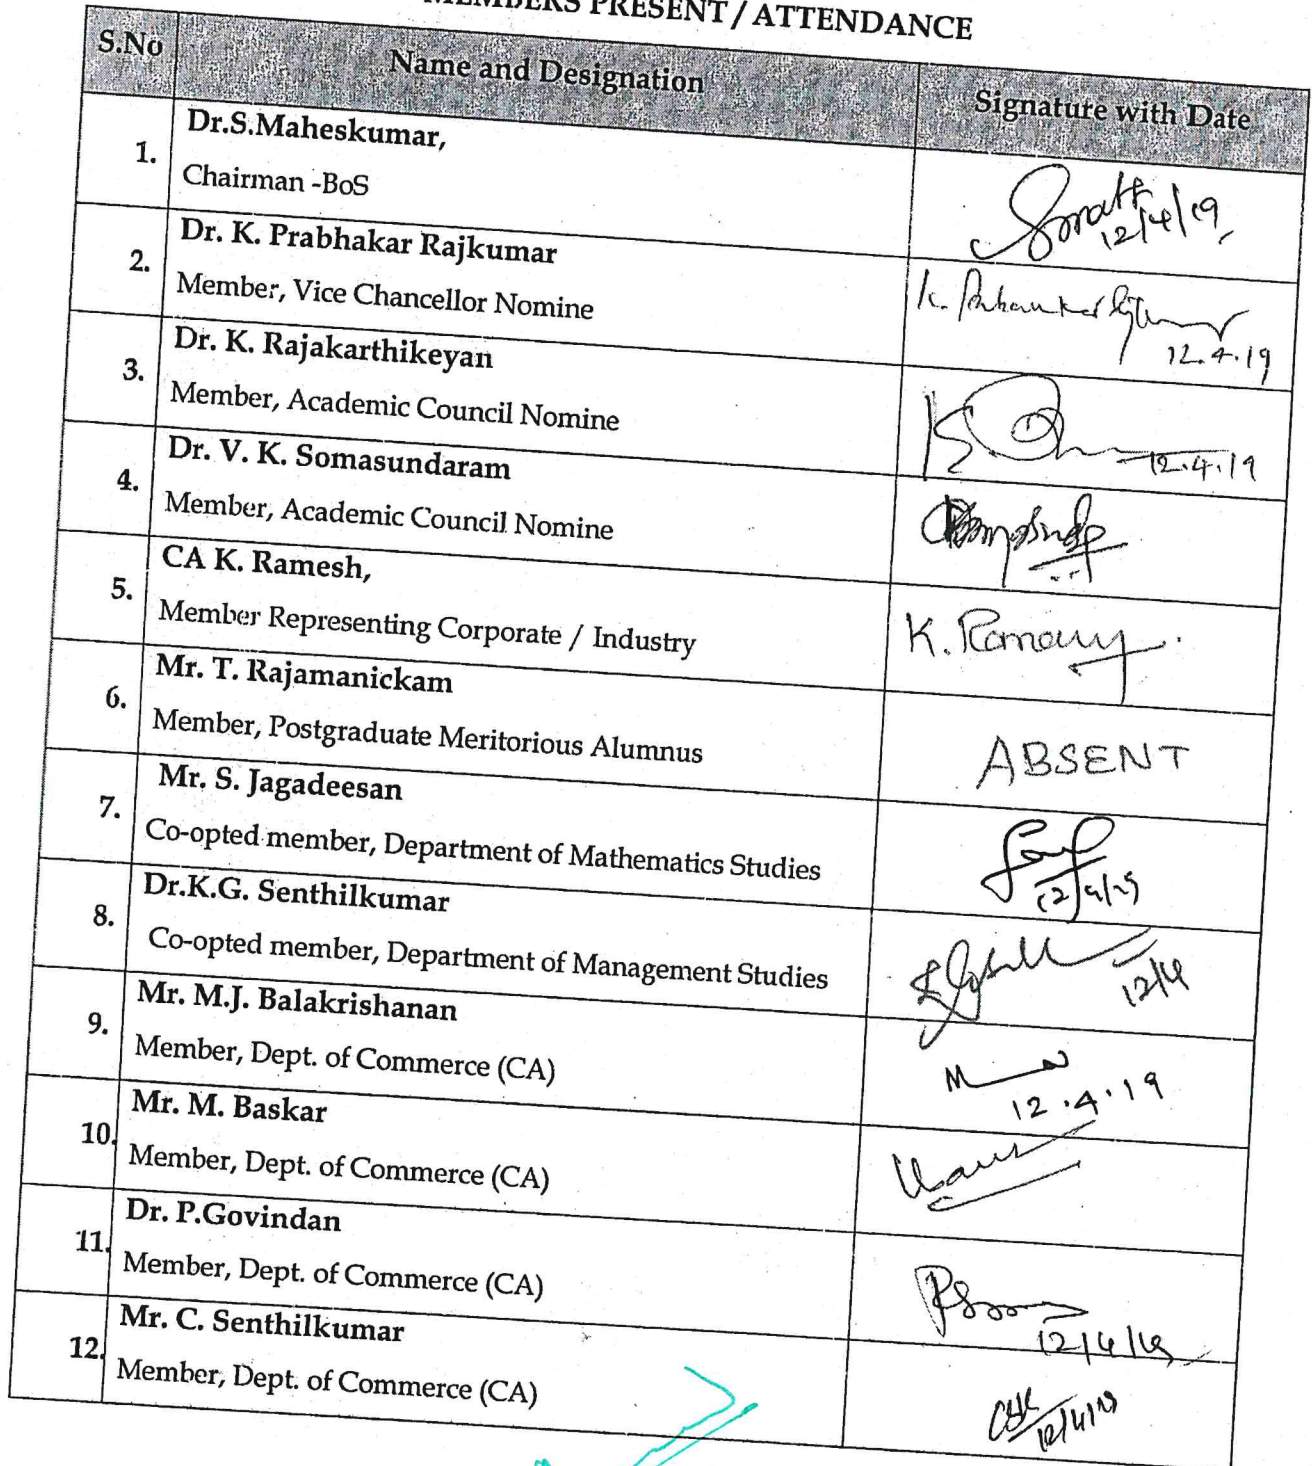 MEMBERS PRESENT / ATTENDANCE
S.No Name and Designation Signature with Date
1. Dr.S.Maheskumar,
Chairman -BoS
12/4/19
2. Dr. K. Prabhakar Rajkumar
Member, Vice Chancellor Nomine
12.4.19
3. Dr. K. Rajakarthikeyan
Member, Academic Council Nomine
12.4.19
4. Dr. V. K. Somasundaram
Member, Academic Council Nomine
5. CA K. Ramesh,
Member Representing Corporate / Industry
K.
6. Mr. T. Rajamanickam
Member, Postgraduate Meritorious Alumnus
ABSENT
7. Mr. S. Jagadeesan
Co-opted member, Department of Mathematics Studies
12/4/19
8. Dr.K.G. Senthilkumar
Co-opted member, Department of Management Studies
12/4
9. Mr. M.J. Balakrishanan
Member, Dept. of Commerce (CA)
12.4.19
10. Mr. M. Baskar
Member, Dept. of Commerce (CA)
11. Dr. P.Govindan
Member, Dept. of Commerce (CA)
12/4/19
12. Mr. C. Senthilkumar
Member, Dept. of Commerce (CA)
12/4/19